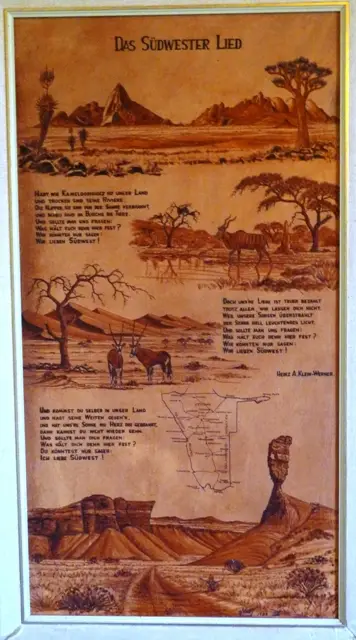 DAS SÜDWESTER LIED
HART WIE KAMELDORNHOLZ IST UNSER LAND
UND TROCKEN SIND SEINE RIVIERE.
DIE KLIPPEN, SIE SIND VON DER SONNE VERBRANNT,
UND SCHEU SIND IM BUSCHE DIE TIERE.
UND SOLLTE MAN UNS FRAGEN:
WAS HÄLT EUCH DENN HIER FEST?
WIR KÖNNTEN NUR SAGEN:
WIR LIEBEN SÜDWEST!
DOCH UNS'RE LIEBE IST TEUER BEZAHLT
TROTZ ALLEM, WIR LASSEN DICH NICHT.
WEIL UNSERE SORGEN ÜBERSTRAHLT
DER SONNE HELL LEUCHTENDES LICHT.
UND SOLLTE MAN UNS FRAGEN:
WAS HÄLT EUCH DENN HIER FEST?
WIR KÖNNTEN NUR SAGEN:
WIR LIEBEN SÜDWEST!
HEINZ A. KLEIN-WERNER
UND KOMMST DU SELBER IN UNSER LAND
UND HAST SEINE WEITEN GESEH'N,
UND HAT UNS'RE SONNE INS HERZ DIR GEBRANNT,
DANN KANNST DU NICHT WIEDER GEHN.
UND SOLLTE MAN DICH FRAGEN:
WAS HÄLT DICH DENN HIER FEST?
DU KÖNNTEST NUR SAGEN:
ICH LIEBE SÜDWEST!